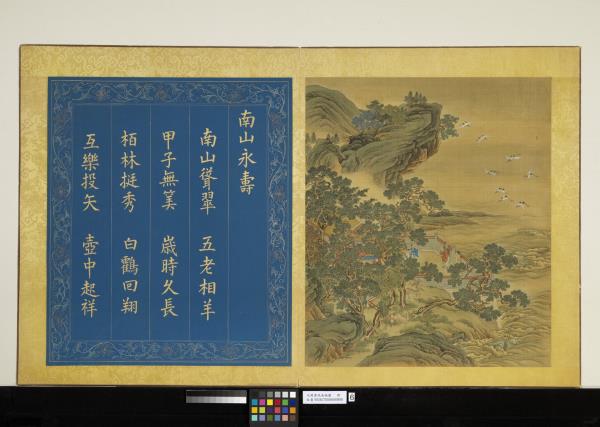 南山永壽
南山聳翠 五老相羊
甲子無筭 歲時久長
栢林挺秀 白鶴回翔
互樂投矢 壺中起祥
6